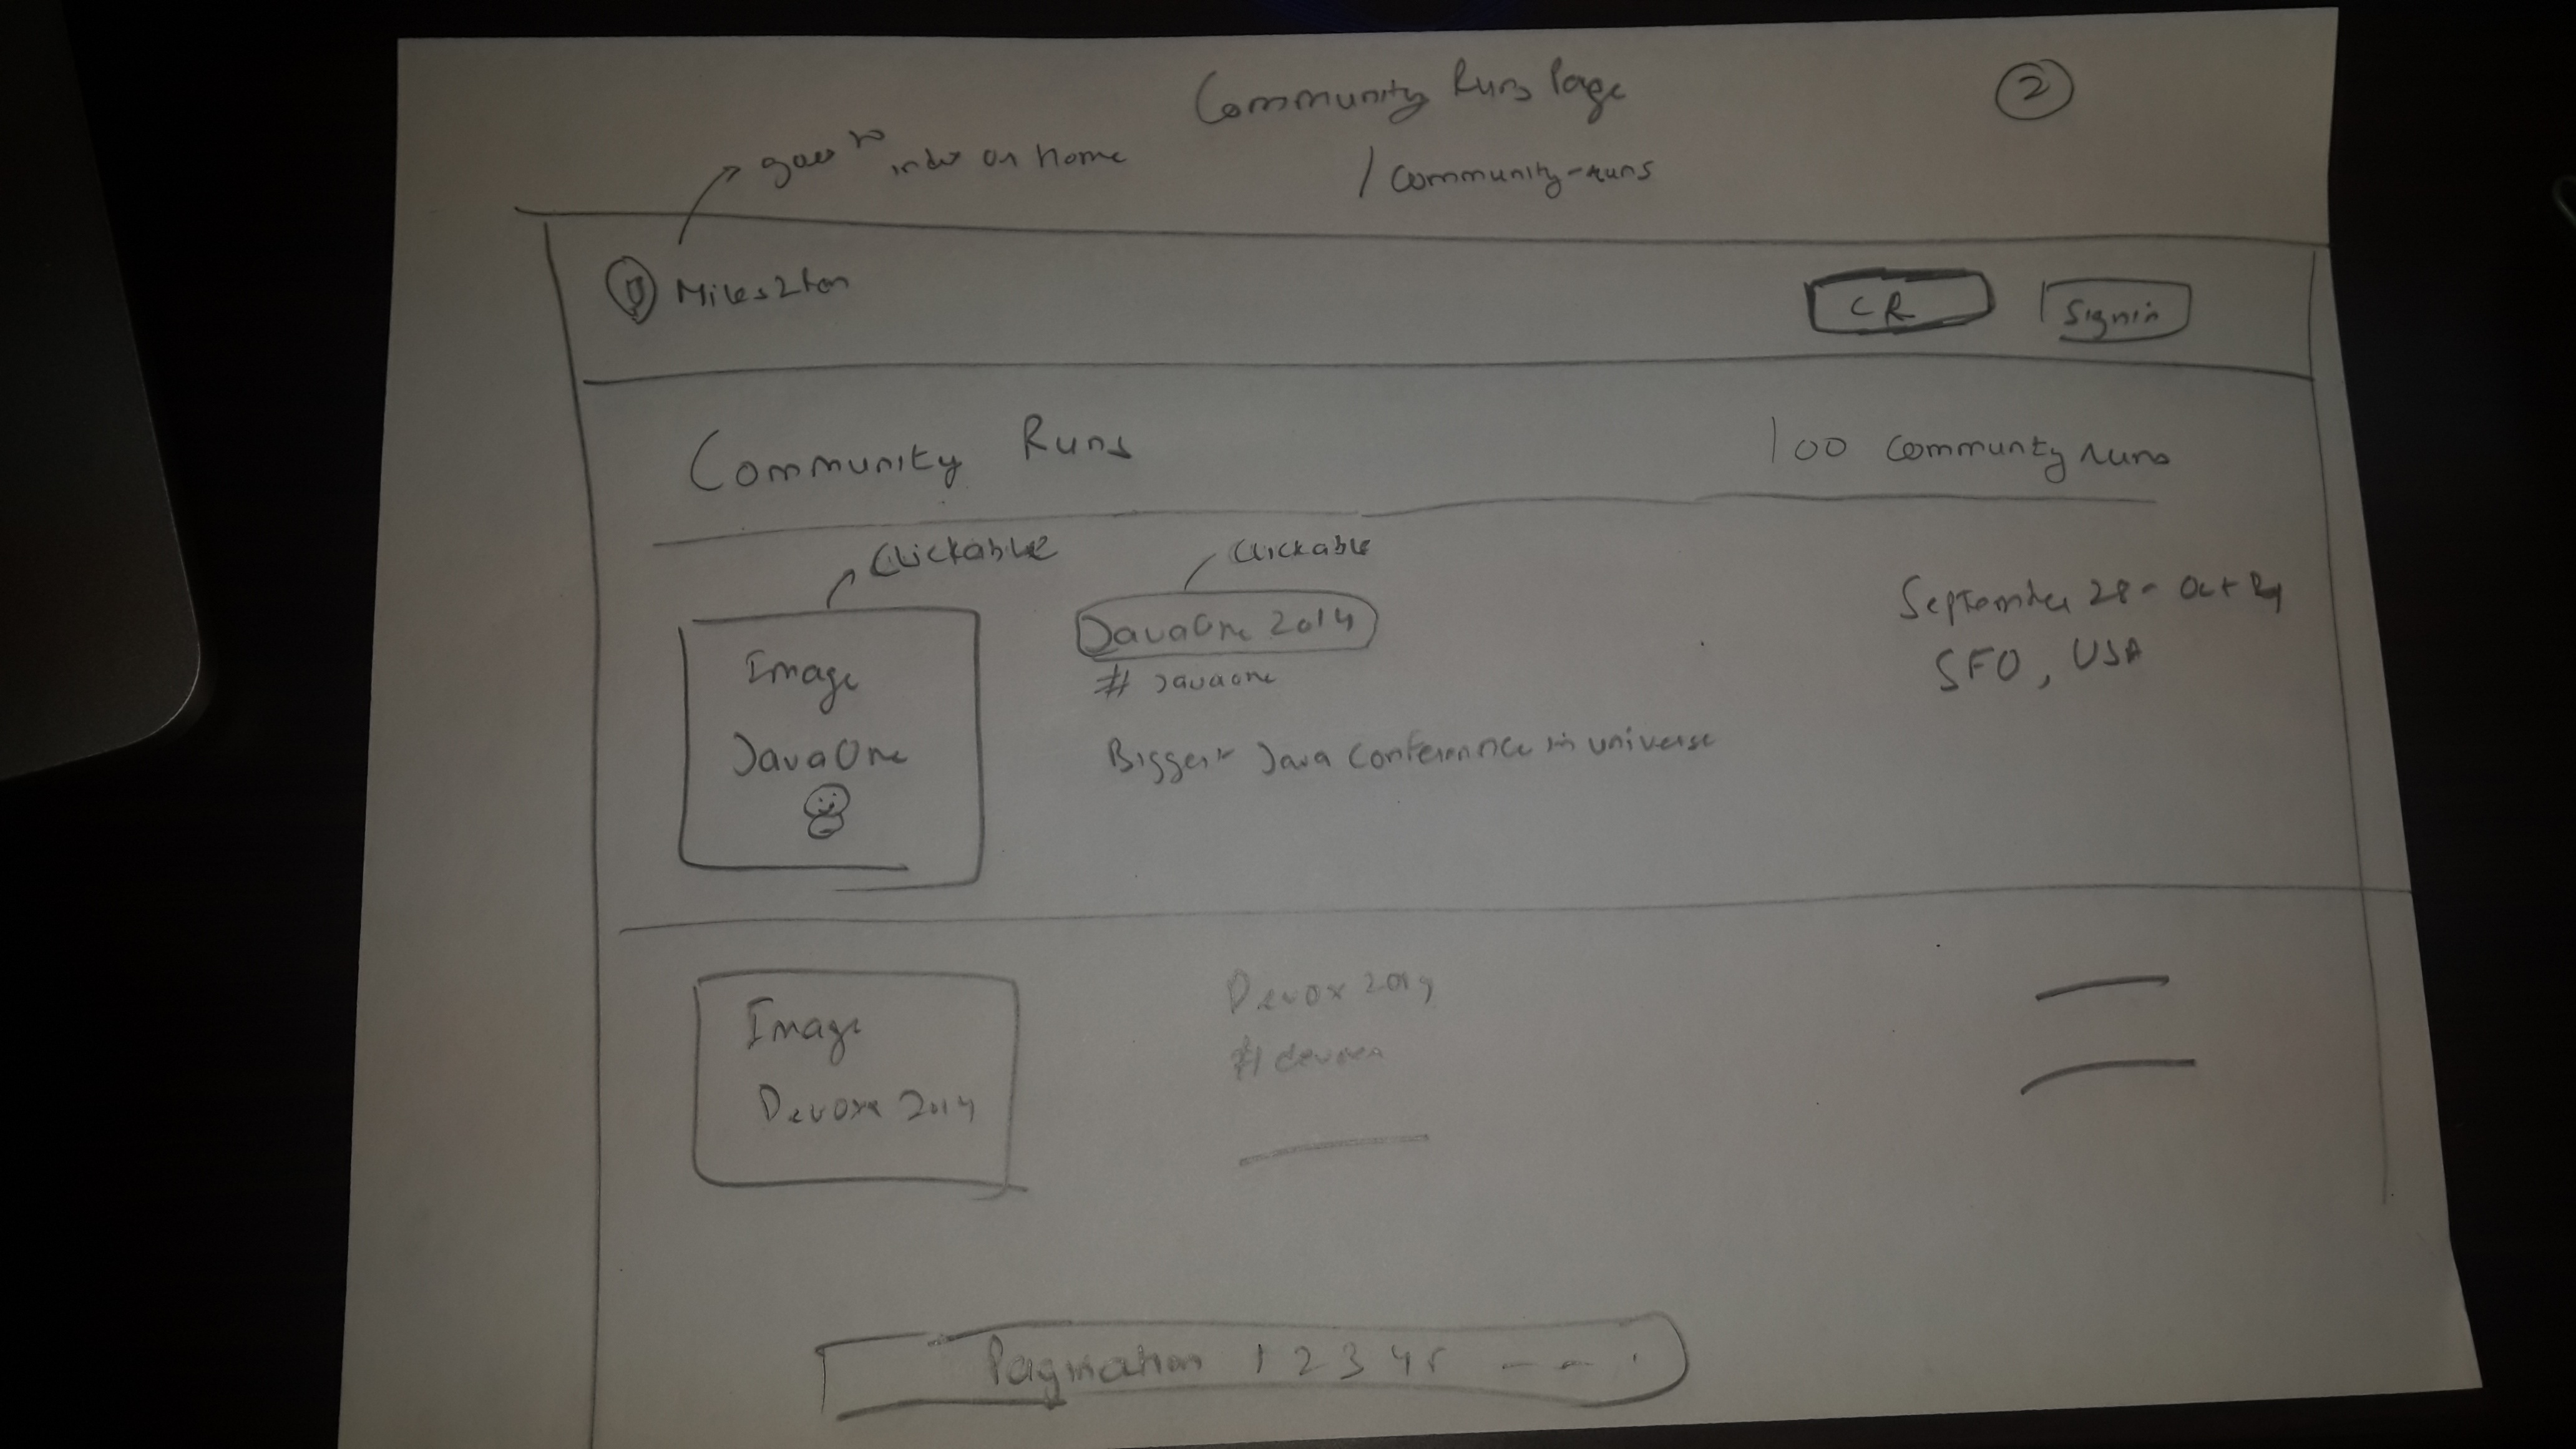 Community Runs Page
2
goes to index or home
/ community-runs
Miles2Run
CR
Signin
Community Runs
100 community runs
Clickable
Clickable
Image
JavaOne
JavaOne 2014
# javaone
Biggest Java Conference in universe
September 28 - Oct
SFO, USA
Image
Devoxx 2014
Devox 2014
# devoxx
Pagination 1 2 3 4 5 - - .